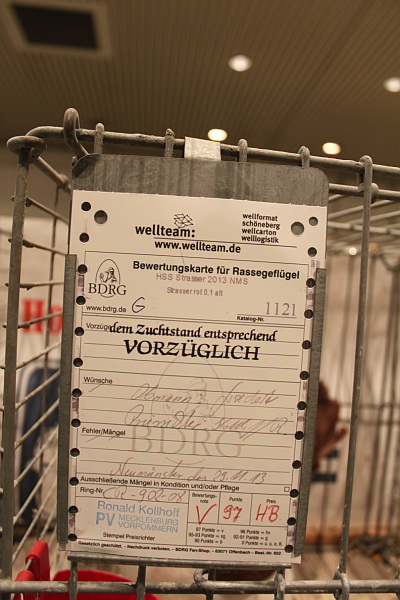 wellteam:
www.wellteam.de
wellformat
schöneberg
wellcarton
welllogistik
Bewertungskarte für Rassegeflügel
HSS Strasser 2013 NMS
Strasser rot 0,1 alt
BDRG
www.bdrg.de G
1121
Katalog-Nr.
Vorzüge
dem Zuchtstand entsprechend
VORZÜGLICH
Wünsche
Obmann
Fehler/Mängel
BDRG
Neumünster den 29.11.13
Ausschließende Mängel in Kondition und/oder Pflege
Ring-Nr.
Ronald Kollhoff
PV MECKLENBURG
VORPOMMERN
Stempel Preisrichter
Bewertungs-
note
Punkte
Preis
V 97 HB
97 Punkte = v
96 Punkte = hv
Gesetzlich geschützt. - Nachdruck verboten. - BDRG Fan-Shop - 63071 Offenbach - Best.-Nr. 802